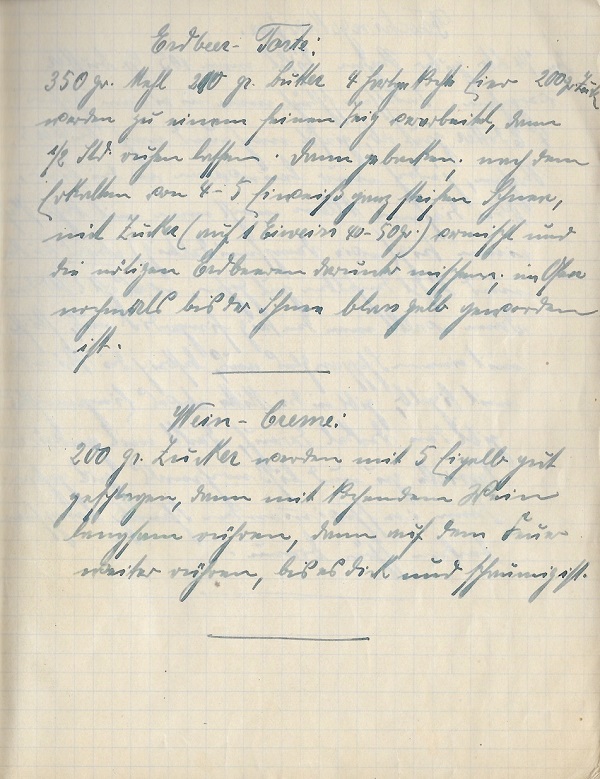 Erdbeer-Torte:
350 gr. Mehl 210 gr. Butter 4 hartgekochte Eier 200 gr Zucker
werden zu einem feinen Teig verarbeitet, dann
1/2 Std. ruhen lassen. Dann gebacken, nach dem
Erkalten von 4-5 Eiweiß ganz steifen Schnee,
mit Zucker (auf 1 Eiweiss 40-50gr.) vermischt und
die nötigen Erdbeeren darunter mischen, im Ofen
nochmals bis der Schnee blass gelb geworden
ist.
Wein-Creme:
200 gr. Zucker werden mit 5 Eigelb gut
geschlagen, dann mit kochendem Wein
langsam rühren, dann auf dem Feuer
weiter rühren, bis es dick und schaumig ist.